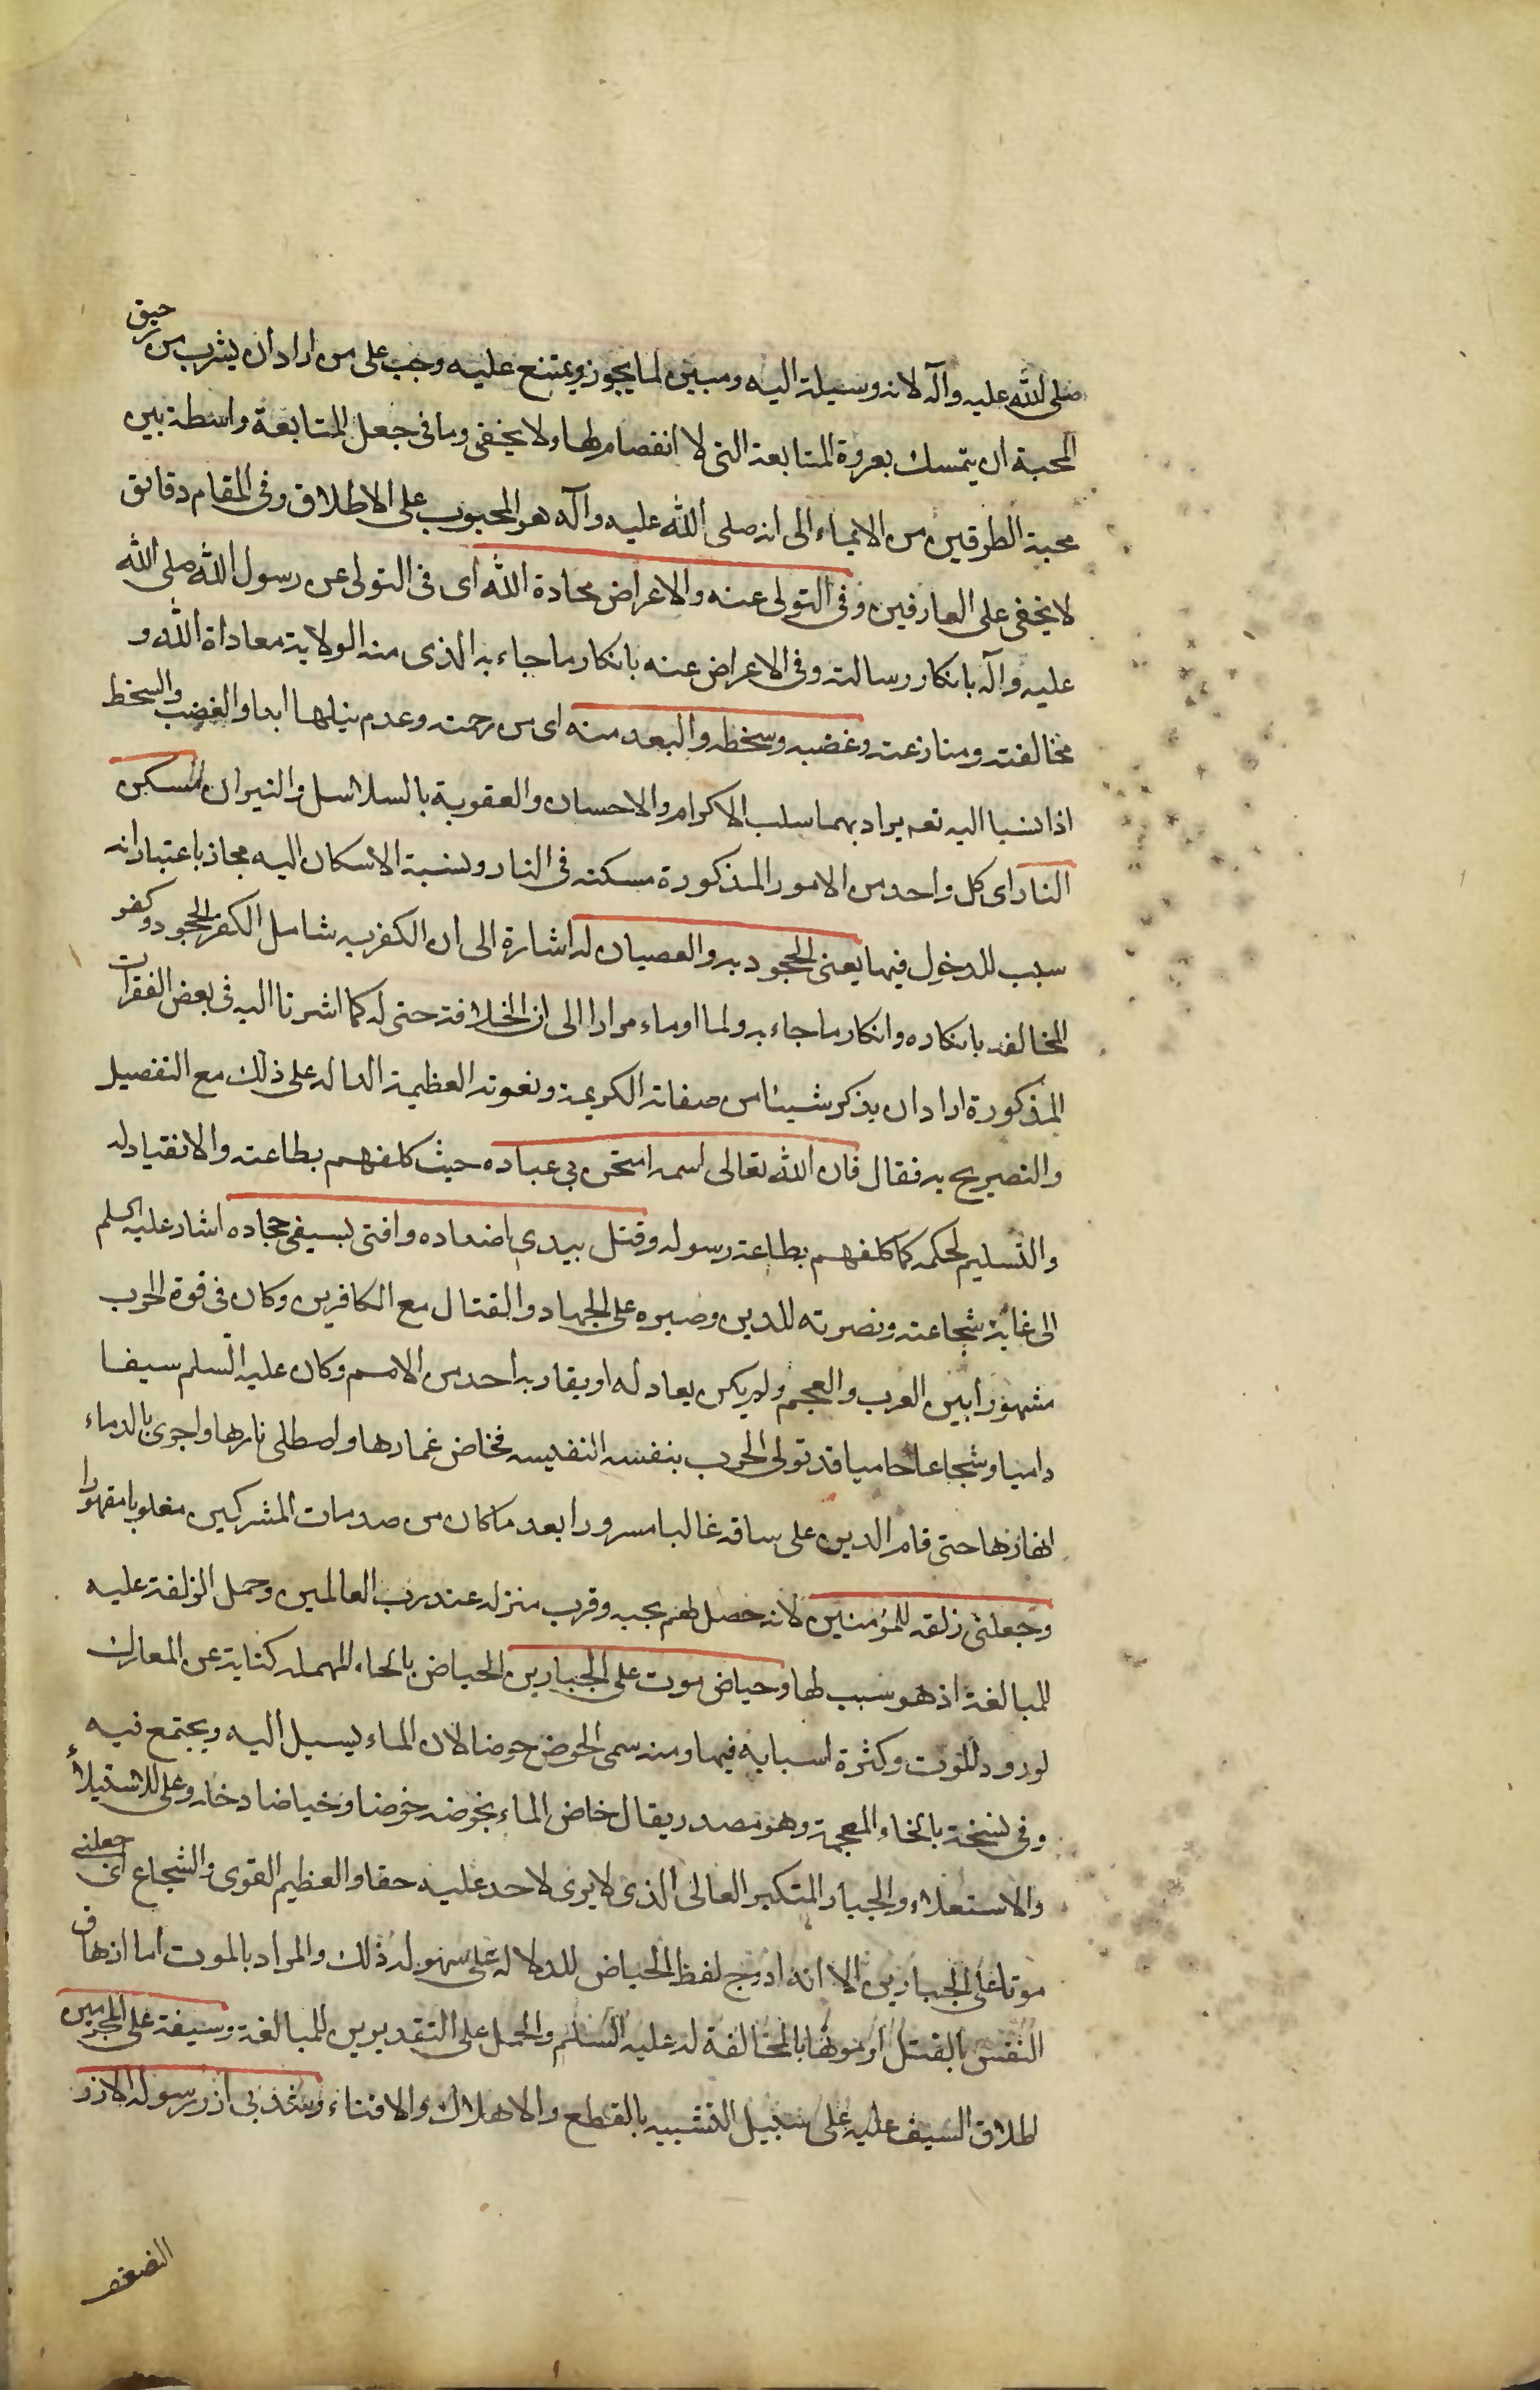 صلى الله عليه وآله لانه وسيلة اليه ومبين لما يجوز ويمتنع عليه وجب على من اراد ان يشرب من رحيق
المحبة ان يتمسك بعروة المتابعة التى لا انفصام لها ولا يخفى وما فى جعل المتابعة واسطة بين
محبة الطرفين من الايماء الى انه صلى الله عليه وآله هو المحبوب على الاطلاق وفى المقام دقايق
لا يخفى على العارفين وفى التولى عنه والاعراض محادة الله اى فى التولى عن رسول الله صلى الله
عليه وآله بانكار رسالته وفى الاعراض عنه بانكار ما جاء به الذى منه الولاية معاداة الله و
مخالفته ومنازعته وغضبه وسخطه والبعد منه اى من رحمته وعدم نيلها ابدا والغضب والسخط
اذا نسبا اليه تعم يراد بهما سلب الاكرام والاحسان والعقوبة بالسلاسل والنيران المسكن
النار اى كل واحد من الامور المذكورة مسكنه فى النار ونسبة الاسكان اليه مجاز باعتبار انه
سبب للدخول فيها يعنى الجحود به والعصيان له اشارة الى ان الكفر به شامل الكفر الجحود وكفر
المخالفه بانكاره وانكار ما جاء به ولما اوماء مرارا الى ان الخلافة حتى له كما اشرنا اليه فى بعض الفقرات
المذكورة اراد ان يذكر شيئا من صفاته الكريمة ونعوته العظيمة الداله على ذلك مع التفصيل
والتصريح به فقال فان الله تعالى اسمه امتحن بى عباده حيث كلفهم بطاعته والانقياد له
والتسليم لحكمه كما كلفهم بطاعة رسوله وقتل بيدى اضداده وافنى بسيفى جحاده اشار عليه السلم
الى غاية شجاعته ونصرته للدين وصبره على الجهاد والقتال مع الكافرين وكان فى قوة الحرب
مشهورا بين العرب والعجم ولم يكن يعادله او يقاربه احد من الامم وكان عليه السلم سيفا
داميا وشجاعا حاميا قد تولى الحرب بنفسه النفيسه فخاض غمارها واصطلى نارها واجرى بالدماء
انهارها حتى قام الدين على ساقه غالبا مسرورا بعد ما كان من صدمات المشركين مغلوبا مقهورا
وجعلنى زلفه للمؤمنين لانه حصل لهم بحبه وقرب منزله عند رب العالمين وحمل الزلفة عليه
للمبالغة اذ هو سبب لها وحياض موت على الجبارين الحياض بالحاء المهمله كناية عن المعارك
لورود الموت وكثرة اسبابه فيها ومنه سمى الحوض حوضا لان الماء يسيل اليه ويجتمع فيه
وفى نسخة بالخاء المعجمة وهو مصدر يقال خاض الماء يخوضه خوضا وخياضا دخله وعلى للاستيلاء
والاستعلاء والجبار المتكبر العالى الذى لا يرى لاحد عليه حقا والعظيم القوى والشجاع اى جعلنى
موتا على الجبارين الا انه ادرج لفظ الحياض للدلاله على سهولة ذلك والمراد بالموت اما ازهاق
النفس بالقتل او موتها بالمخالفة له عليه السلم والحمل على التقديرين للمبالغة وسيفة على المجرمين
اطلاق السيف عليه على سبيل التشبيه بالقطع والاهلاك والافناء وشد بى ازر رسوله الازر